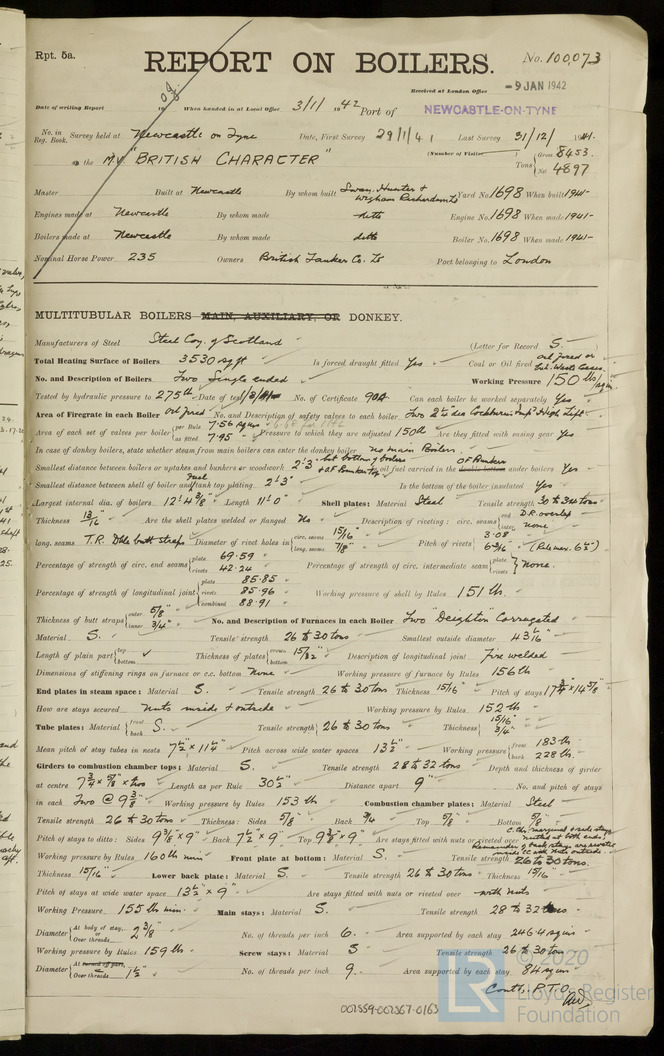 Rpt. 5a.
REPORT ON BOILERS.
No. 100,073
Received at London Office
-9 JAN 1942
Date of writing Report When handed in at Local Office 3/1/1942 Port of NEWCASTLE-ON-TYNE
No. in Reg. Book. Survey held at Newcastle on Tyne Date, First Survey 29/1/41 Last Survey 31/12/1941.
(Number of Visits)
on the M.V. "BRITISH CHARACTER" Tons { Gross 8453. Net 4897
Master Built at Newcastle By whom built Swan, Hunter & Wigham Richardson Ld Yard No. 1698 When built 1941-
Engines made at Newcastle By whom made ditto Engine No. 1698 When made 1941-
Boilers made at Newcastle By whom made ditto Boiler No. 1698 When made 1941-
Nominal Horse Power 235 Owners British Tanker Co. Ld Port belonging to London
MULTITUBULAR BOILERS MAIN, AUXILIARY, OR DONKEY.
Manufacturers of Steel Steel Coy. of Scotland (Letter for Record S.
Total Heating Surface of Boilers 3530 sq ft Is forced draught fitted Yes Coal or Oil fired oil fired or
No. and Description of Boilers Two Single ended Working Pressure 150 lb
Tested by hydraulic pressure to 275 lb Date of test No. of Certificate 90A Can each boiler be worked separately Yes
Area of Firegrate in each Boiler Oil fired No. and Description of safety valves to each boiler Two 2½" dia Cockburn Imp. High Lift
Area of each set of valves per boiler { per Rule 7.56 as fitted 7.95 Pressure to which they are adjusted 150 lb Are they fitted with easing gear Yes
In case of donkey boilers, state whether steam from main boilers can enter the donkey boiler no main Boilers
Smallest distance between boilers or uptakes and bunkers or woodwork 2'3" Is oil fuel carried in the double bottom under boilers Yes
Smallest distance between shell of boiler and tank top plating 2'3" Is the bottom of the boiler insulated Yes
Largest internal dia. of boilers 12'4⅜" Length 11'0" Shell plates: Material Steel Tensile strength 30 to 34 tons
Thickness 13/16" Are the shell plates welded or flanged No Description of riveting: circ. seams { end D.R. overlap inter. none
long. seams T.R. Dble butt straps Diameter of rivet holes in { circ. seams 15/16" long. seams 7/8" Pitch of rivets { 3.08 6 3/16 (Rule max. 6½")
Percentage of strength of circ. end seams { plate 69.59 rivets 42.24 Percentage of strength of circ. intermediate seam { plate rivets } none.
Percentage of strength of longitudinal joint { plate 85.85 rivets 85.96 combined 88.91 Working pressure of shell by Rules 151 lb.
Thickness of butt straps { outer 5/8" inner 3/4" No. and Description of Furnaces in each Boiler Two "Deighton" Corrugated
Material S. Tensile strength 26 to 30 tons Smallest outside diameter 43½"
Length of plain part { top bottom Thickness of plates { crown bottom 15/32" Description of longitudinal joint fire welded
Dimensions of stiffening rings on furnace or c.c. bottom None Working pressure of furnace by Rules 156 lb
End plates in steam space: Material S. Tensile strength 26 to 30 tons Thickness 15/16" Pitch of stays 17¾" x 14⅝"
How are stays secured Nuts inside & outside Working pressure by Rules 152 lb
Tube plates: Material { front back S. Tensile strength { 26 to 30 tons Thickness { 15/16" 3/4"
Mean pitch of stay tubes in nests 7½" x 11¼" Pitch across wide water spaces 13½" Working pressure { front 183 lb back 228 lb.
Girders to combustion chamber tops: Material S. Tensile strength 28 to 32 tons Depth and thickness of girder
at centre 7¾" x 5/8" x two Length as per Rule 30½" Distance apart 9" No. and pitch of stays
in each Two @ 9⅜" Working pressure by Rules 153 lb Combustion chamber plates: Material Steel
Tensile strength 26 to 30 tons Thickness: Sides 5/8" Back Top 5/8" Bottom 5/8"
Pitch of stays to ditto: Sides 9⅜" x 9" Back 7½" x 9" Top 9⅜" x 9" Are stays fitted with nuts or riveted over
Working pressure by Rules 160 lb min Front plate at bottom: Material S. Tensile strength 26 to 30 tons.
Thickness 15/16" Lower back plate: Material S. Tensile strength 26 to 30 tons Thickness 15/16"
Pitch of stays at wide water space 13½" x 9" Are stays fitted with nuts or riveted over with nuts
Working Pressure 155 lbs min. Main stays: Material S. Tensile strength 28 to 32 tons
Diameter { At body of stay, or Over threads 2⅜" No. of threads per inch 6. Area supported by each stay 246.4 sq ins
Working pressure by Rules 159 lb. Screw stays: Material S Tensile strength 26 to 30 tons
Diameter { At turned off part, or Over threads 1½" No. of threads per inch 9. Area supported by each stay 84 sq ins
Contd. P.T.O.
002559-002567-0163
© 2020
LR
Lloyd's Register
Foundation